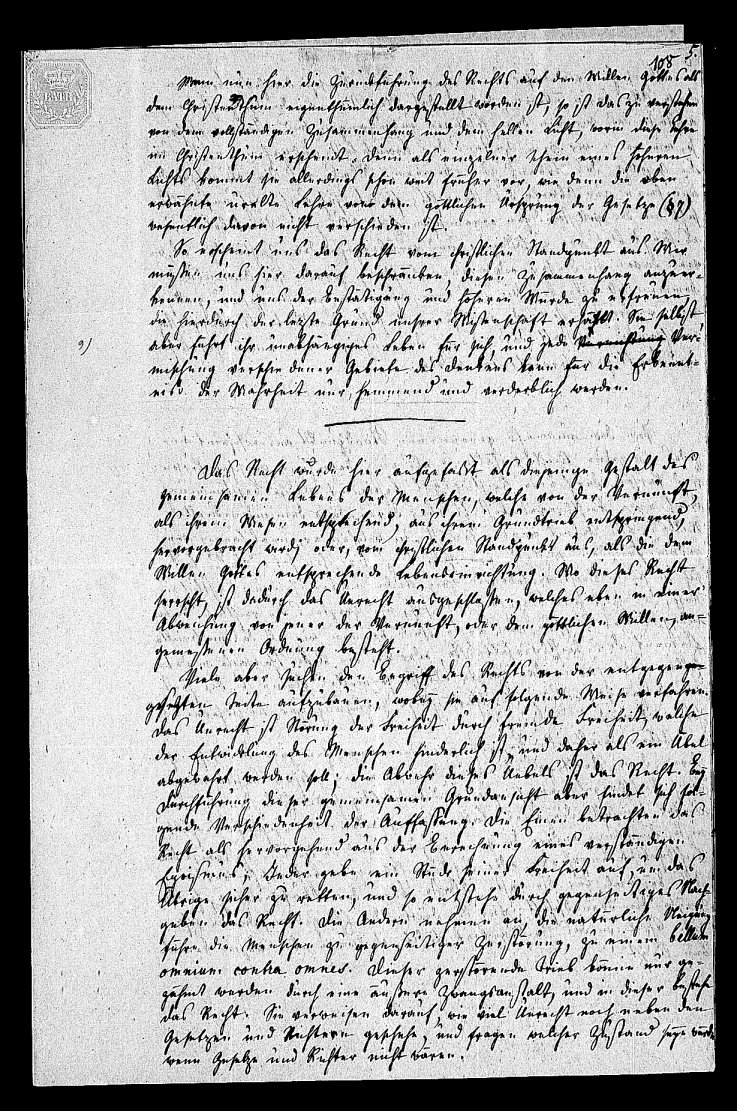 108 5.
BATH
Wenn nun hier die Zurückführung des Rechts auf den Willen Gottes als
dem Christenthum eigenthümlich dargestellt worden ist, so ist das zu verstehen
von dem vollständigen Zusammenhang und dem hellen Licht, worin diese Lehre
im Christenthum erscheint. Denn als einzelner Schein eines höheren
Lichts kommt sie allerdings schon weit früher vor, wie denn die oben
erwähnte uralte Lehre von dem göttlichen Ursprung der Gesetze (§7)
wesentlich davon nicht verschieden ist.
So erscheint uns das Recht vom christlichen Standpunkt aus. Wir
müssen uns hier darauf beschränken, diesen Zusammenhang anzuer-
kennen, und uns der Bestätigung und höheren Würde zu erfreuen,
die hierdurch der letzte Grund unsrer Wissenschaft erhält. Sie selbst
aber führt ihr unabhängiges Leben für sich, und jede Ver-
mischung verschiedener Gebiete des Denkens kann für die Erkennt-
niß der Wahrheit nur hemmend und verderblich werden.
Das Recht wurde hier aufgefasst als diejenige Gestalt des
gemeinsamen Lebens der Menschen, welche von der Vernunft,
als ihrem Wesen entsprechend, aus ihrem Grundtrieb entspringend,
hervorgebracht wird; oder, vom christlichen Standpunkt aus, als die dem
Willen Gottes entsprechende Lebenseinrichtung. Wo dieses Recht
herrscht, ist dadurch das Unrecht ausgeschlossen, welches eben in einer
Abweichung von jener der Vernunft, oder dem göttlichen Willen, an-
gemessenen Ordnung besteht.
Viele aber suchen den Begriff des Rechts von der entgegenge-
gesetzten Seite aufzubauen, wobey sie auf folgende Weise verfahren.
Das Unrecht ist Störung der Freiheit durch fremde Freiheit, welche
der Entwicklung des Menschen hinderlich ist, und daher als ein Übel
abgewehrt werden soll; die Abwehr dieses Uebels ist das Recht. Bey
Durchführung dieser gemeinsamen Grundansicht aber findet sich fol-
gende Verschiedenheit der Auffassung. Die Einen betrachten das
Recht als hervorgehend aus der Berechnung eines verständigen
Egoismus; Jeder gebe ein Stück seiner Freiheit auf, um das
Übrige sicher zu retten, und so entstehe durch gegenseitiges Nach-
geben das Recht. Die Andern nehmen an, die natürliche Neigung
führe die Menschen zu gegenseitiger Zerstörung, zu einem bellum
omnium contra omnes. Dieser zerstörende Trieb könne nur ge-
zähmt werden durch eine äußere Zwangsanstalt, und in dieser bestehe
das Recht. Sie verweisen darauf, wie viel Unrecht noch neben den
Gesetzen und Richtern geschehe, und fragen welcher Zustand seyn würde
wenn Gesetze und Richter nicht wären.